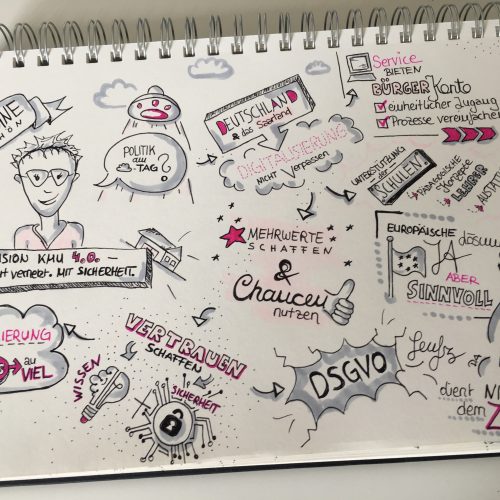 NE
POLITIK
am
-TAG?
DEUTSCHLAND
& das Saarland
DIGITALISIERUNG
NICHT VERPASSEN
Service
BIETEN
BÜRGER Konto
einheitlicher Zugang
Prozesse vereinfachen
UNTERSTÜTZUNG
der
SCHULEN!
PÄDAGOGISCHE
Konzepte
LEHRER
VISION KMU 4.0. –
vernetzt. MIT SICHERHEIT.
MEHRWERTE
SCHAFFEN
&
Chancen
nutzen
EUROPÄISCHE
JA
ABER
SINNVOLL
IERUNG
zu
VIEL
VERTRAUEN
SCHAFFEN
WISSEN
SICHERHEIT
DSGVO
Seufz
dient
dem